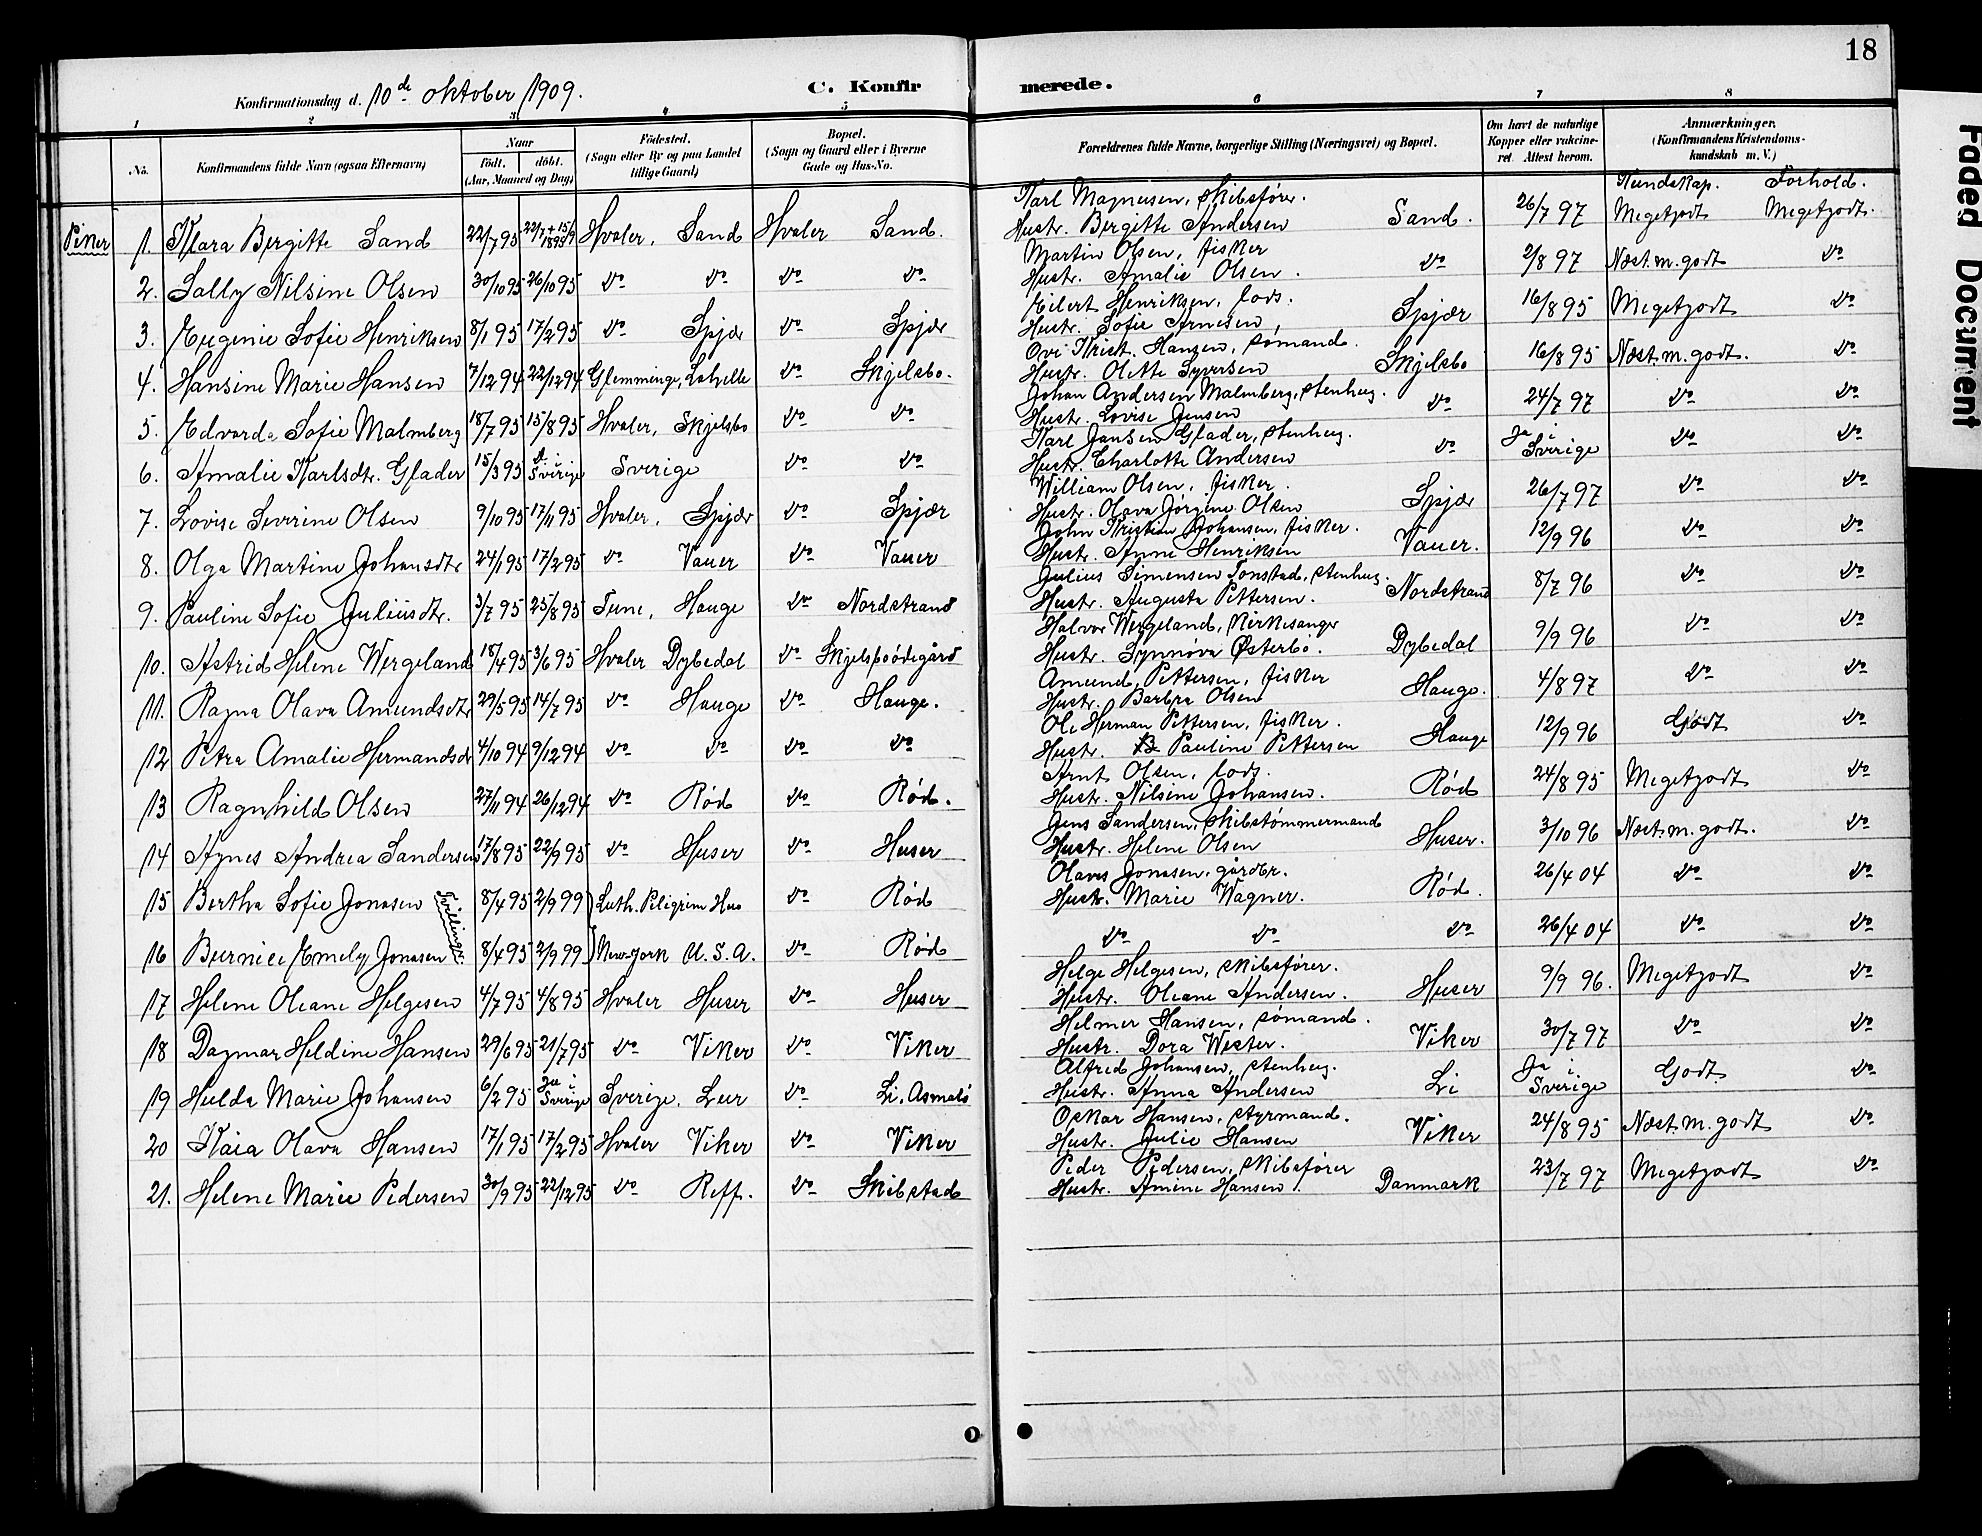 18
Konfirmationsdag d. 10de oktober 1909.
C. Konfirmerede.
1 2 3 4 5 6 7 8
No. Konfirmandens fulde Navn (ogsaa Efternavn) Naar födt. döbt. (Aar, Maaned og Dag) Födested. (Sogn eller By og paa Landet tillige Gaard) Bopæl. (Sogn og Gaard eller i Byerne Gade og Hus-No. Forældrenes fulde Navne, borgerlige Stilling (Næringsvei) og Bopæl. Om havt de naturlige Kopper eller vakcineret. Attest herom. Anmærkninger. (Konfirmandens Kristendomskundskab m. V.)
Kundskap. Forhold.
Piker
1. Klara Bergitte Sand 22/7 95 Hvaler, Sand Hvaler Sand. Karl Magnusen, skibsfører. Hustr. Bergitte Andersen Sand. 26/7 97 Megetgodt Megetgodt.
2. Sally Nilsine Olsen 30/10 95 26/10 95 do do do do Martin Olsen, fisker Hustr. Amalie Olsen. do 2/8 97 Næst.m.godt do
3. Eugenie Sofie Henriksen 8/1 95 17/2 95 do Spjær do Spjær Eilert Henriksen, lods. Hustr. Sofie Arnesen, Spjær 16/8 95 Megetgodt do
4. Hansine Marie Hansen 7/12 94 22/12 94 Glemminge, do Skjelsbo. Ove Krist. Hansen, sømand. Hustr. Olette Syversen Skjelsbo 16/8 95 Næst.m.godt. do
5. Edvarda Sofie Malmberg 18/7 95 15/8 95 Hvaler, Skjelsbo do do Johan Andersen Malmberg, stenhug. Hustr. Lovise Jensen do 24/7 97 do do
6. Amalie Karlsdtr. Glader 15/3 95 i Sverige Sverige do do Karl Jansen Glader, stenhug. Hustr. Charlotte Andersen do Ja i Sverige do do
7. Lovise Severine Olsen 9/10 95 17/11 95 Hvaler, Spjær do Spjær William Olsen, fisker. Hustr. Olava Jørgine Olsen Spjær 26/7 97 do do
8. Olga Martine Johansdtr 24/1 95 17/2 95 do Vauer do Vauer John Kristian Johansen, fisker. Hustr. Anne Henriksen Vauer. 12/9 96 do do
9. Pauline Sofie Juliusdtr. 3/7 95 25/8 95 Tune, Hauge do Nordstrand Julius Simensen Tonstad, stenhug. Hustr. Augusta Pettersen. Nordstrand 8/7 96 do do
10. Astrid Helene Wergeland 18/4 95 3/6 95 Hvaler Dybedal do Skjelsboödegård Halvor Wergeland, kirkesanger Hustr. Synnøva Østerbö. Dybedal 9/9 96 do do
11. Ragna Olava Amundsdtr 22/5 95 14/7 95 do Hauge do Hauge. Amund Pettersen, fisker Hustr. Barbra Olsen Hauge. 4/8 97 do do
12 Petra Amalie Hermandsdr 4/10 94 9/12 94 do do do do Ole Herman Pettersen, fisker. Hustr. Pauline Pettersen Hauge 12/9 96 Godt do
13 Ragnhild Olsen 27/11 94 26/12 94 do Rød do Rød. Arnt Olsen, lods. Hustr. Nilsine Johansen. Rød 24/8 95 Megetgodt do
14 Agnes Andrea Sandersen 17/8 95 22/9 95 do Huser do Huser Jens Sandersen, skibstømmermand Hustr. Helene Olsen Huser. 3/10 96 Næst.m.godt. do
15 Bertha Sofie Jonasen Tvillinger 8/4 95 2/9 99 Luth. Piligrim Hus do Rød Olaves Jonasen, gårdbr. Hustr. Marie Wagner. Rød. 26/4 04 do do
16 Burnice Emely Jonasen 8/4 95 2/9 99 New-york U.S.A. do Rød do do do 26/4 04 do do
17 Helene Oleane Helgesen 4/7 95 4/8 95 Hvaler Huser do Huser Helge Helgesen, skibsfører. Hustr. Oleane Andersen. Huser 9/9 96. Megetgodt do
18 Dagmar Heldine Hansen 29/6 95 21/7 95 do Viker do Viker Helmer Hansen, sømand. Hustr. Dora Wester. Viker 30/7 97 do do
19 Hulda Marie Johansen 6/2 95 Ja i Sverige Sverige, Lur do Li, Asmalö Alfred Johansen, stenhug. Hustr. Anna Andersen Li Ja i Sverige Godt do
20 Kaia Olava Hansen 17/1 95 17/2 95 Hvaler Viker do Viker Oskar Hansen, styrmand. Hustr. Julie Hansen Viker 24/8 95 Næst.m.godt do
21. Helene Marie Pedersen 30/9 95 22/12 95 do Reff. do Skibstad Peder Pedersen, skibsfører Hustr. Amine Hansen. Danmark 23/7 97 Megetgodt do
Faded Document